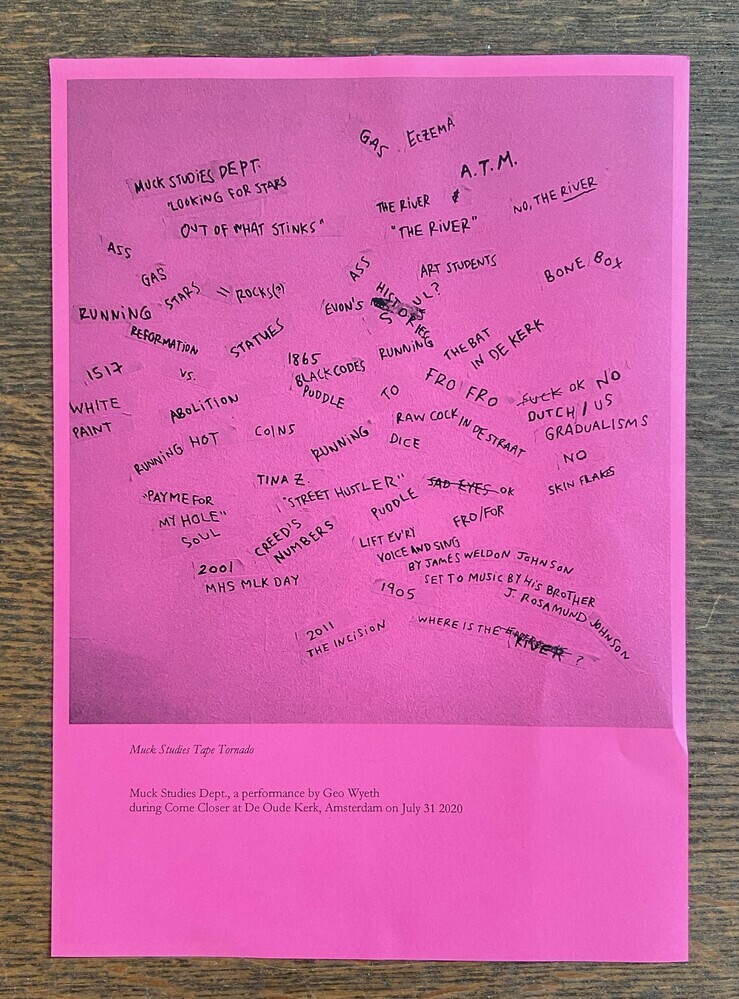 GAS
ECZEMA
MUCK STUDIES DEPT.
"LOOKING FOR STARS
OUT OF WHAT STINKS"
A.T.M.
THE RIVER &
"THE RIVER"
NO, THE RIVER
ASS
GAS
STARS = ROCKS(?)
ASS
ART STUDENTS
BONE BOX
RUNNING
EVON'S
HISTORIES
SOUL?
REFORMATION
STATUES
1517
VS.
1865
BLACK CODES
PUDDLE
RUNNING
THE BAT
IN DE KERK
WHITE
PAINT
ABOLITION
TO
FRO FRO
FUCK OK NO
DUTCH / US
GRADUALISMS
RUNNING HOT
COINS
RUNNING
DICE
RAW COCK IN DE STRAAT
NO
SKIN FLAKES
TINA Z.
"STREET HUSTLER"
SAD EYES OK
"PAY ME FOR
MY HOLE"
SOUL
CREED'S
NUMBERS
PUDDLE
FRO/FOR
LIFT EV'RY
VOICE AND SING
BY JAMES WELDON JOHNSON
SET TO MUSIC BY HIS BROTHER
J. ROSAMUND JOHNSON
2001
MHS MLK DAY
1905
2011
THE INCISION
WHERE IS THE RIVER?
Muck Studies Tape Tornado
Muck Studies Dept., a performance by Geo Wyeth
during Come Closer at De Oude Kerk, Amsterdam on July 31 2020